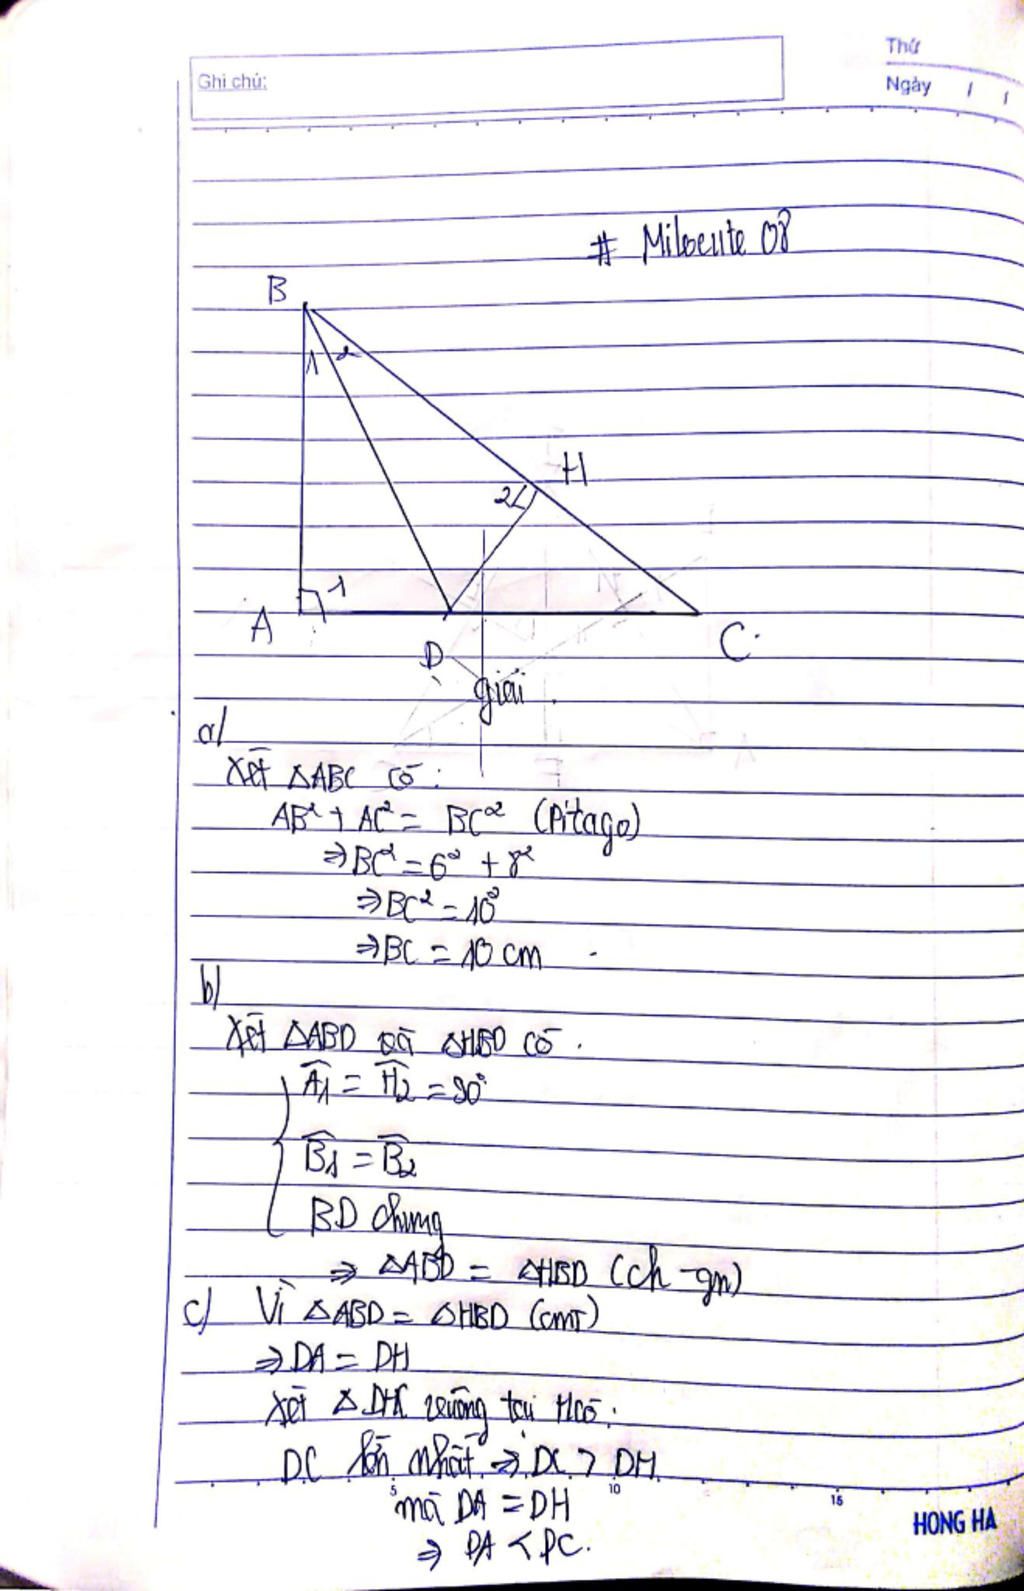 Ghi chú:
Thứ
Ngày / /
# Milocute 08
B
1 2
H
2
1
A
D
C
giải
a/
Xét ΔABC có:
AB² + AC² = BC² (Pitago)
⇒ BC² = 6² + 8²
⇒ BC² = 10²
⇒ BC = 10 cm
b/
Xét ΔABD và ΔHBD có
Â1 = Ĥ2 = 90°
B̂1 = B̂2
BD chung
⇒ ΔABD = ΔHBD (ch - gn)
c/ Vì ΔABD = ΔHBD (cmt)
⇒ DA = DH
Xét Δ DHC vuông tại H có:
DC lớn nhất ⇒ DC > DH
5 10 15
mà DA = DH
HONG HA
⇒ DA < DC.